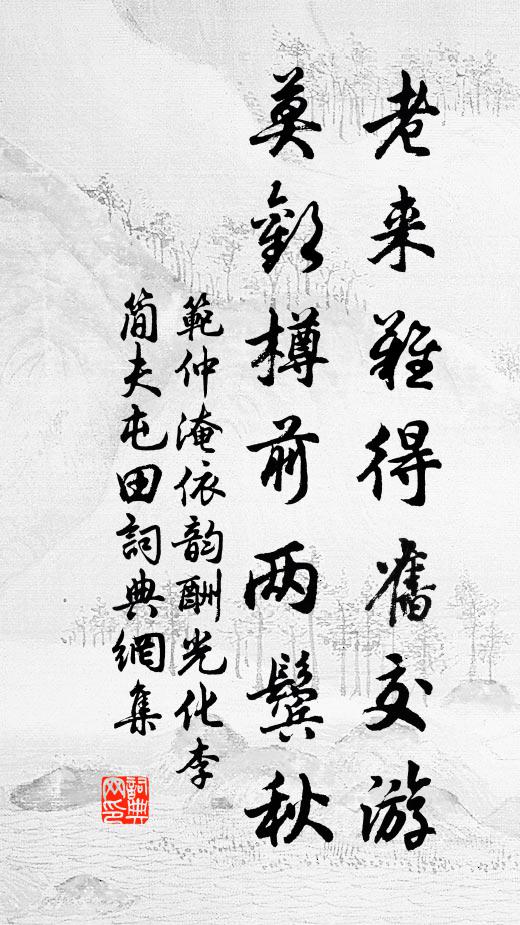 老来難得舊交游
莫歎樽前两鬓秋
範仲淹依韵酬光化李
简夫屯田詞典網集
詞典网印